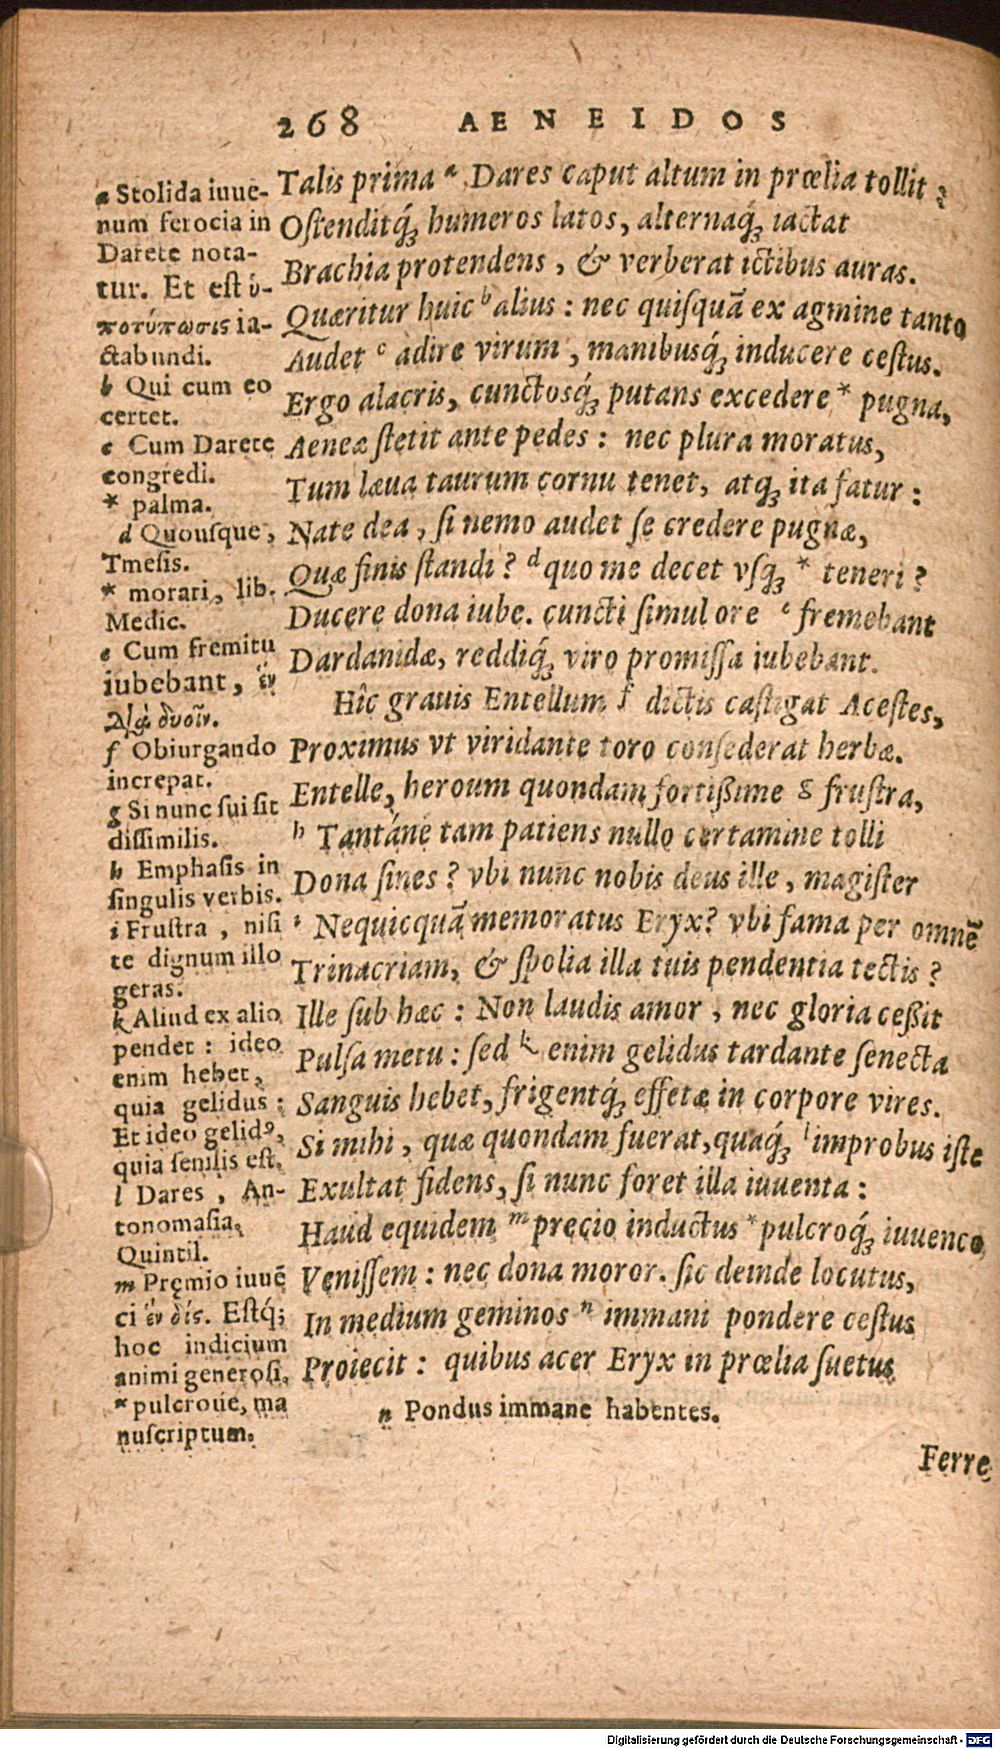 268 AENEIDOS
a Stolida iuue-
num ferocia in
Darete nota-
tur. Et est ὑ-
ποτύπωσις ia-
ctabundi.
b Qui cum eo
certet.
c Cum Darete
congredi.
* palma.
d Quousque,
Tmesis.
* morari, lib.
Medic.
e Cum fremitu
iubebant, ἓν
διὰ δυοῖν.
f Obiurgando
increpat.
g Si nunc sui sit
dissimilis.
h Emphasis in
singulis verbis.
i Frustra, nisi
te dignum illo
geras.
k Aliud ex alio
pendet: ideo
enim hebet,
quia gelidus:
Et ideo gelidꝰ,
quia senilis est.
l Dares, An-
tonomasia,
Quintil.
m Pręmio iuuē
ci ἓν δὶς. Estq́;
hoc indicium
animi generosi.
* pulcroue, ma
nuscriptum.
Talis prima ᵃ Dares caput altum in prœlia tollit;
Ostenditq́ꝫ humeros latos, alternaq́ꝫ iactat
Brachia protendens, & verberat ictibus auras.
Quæritur huic ᵇ alius: nec quisquã ex agmine tanto
Audet ᶜ adire virum, manibusq́ꝫ inducere cestus.
Ergo alacris, cunctosq́ꝫ putans excedere * pugna,
Aeneæ stetit ante pedes: nec plura moratus,
Tum læua taurum cornu tenet, atqꝫ ita fatur:
Nate dea, si nemo audet se credere pugnæ,
Quæ finis standi? ᵈ quo me decet vsq́ꝫ * teneri?
Ducere dona iube. cuncti simul ore ᵉ fremebant
Dardanidæ, reddiq́ꝫ viro promissa iubebant.
Hîc grauis Entellum ᶠ dictis castigat Acestes,
Proximus vt viridante toro consederat herbæ.
Entelle, heroum quondam fortißime ᵍ frustra,
ʰ Tantáne tam patiens nullo certamine tolli
Dona sines? vbi nunc nobis deus ille, magister
ⁱ Nequicquã memoratus Eryx? vbi fama per omnẽ
Trinacriam, & spolia illa tuis pendentia tectis?
Ille sub hæc: Non laudis amor, nec gloria ceßit
Pulsa metu: sed ᵏ enim gelidus tardante senecta
Sanguis hebet, frigentq́ꝫ effetæ in corpore vires.
Si mihi, quæ quondam fuerat, quaq́ꝫ ˡ improbus iste
Exultat fidens, si nunc foret illa iuuenta:
Haud equidem ᵐ precio inductus * pulcroq́ꝫ iuuenco
Venissem: nec dona moror. sic deinde locutus,
In medium geminos ⁿ immani pondere cestus
Proiecit: quibus acer Eryx in prœlia suetus
n Pondus immane habentes.
Ferre
Digitalisierung gefördert durch die Deutsche Forschungsgemeinschaft - DFG